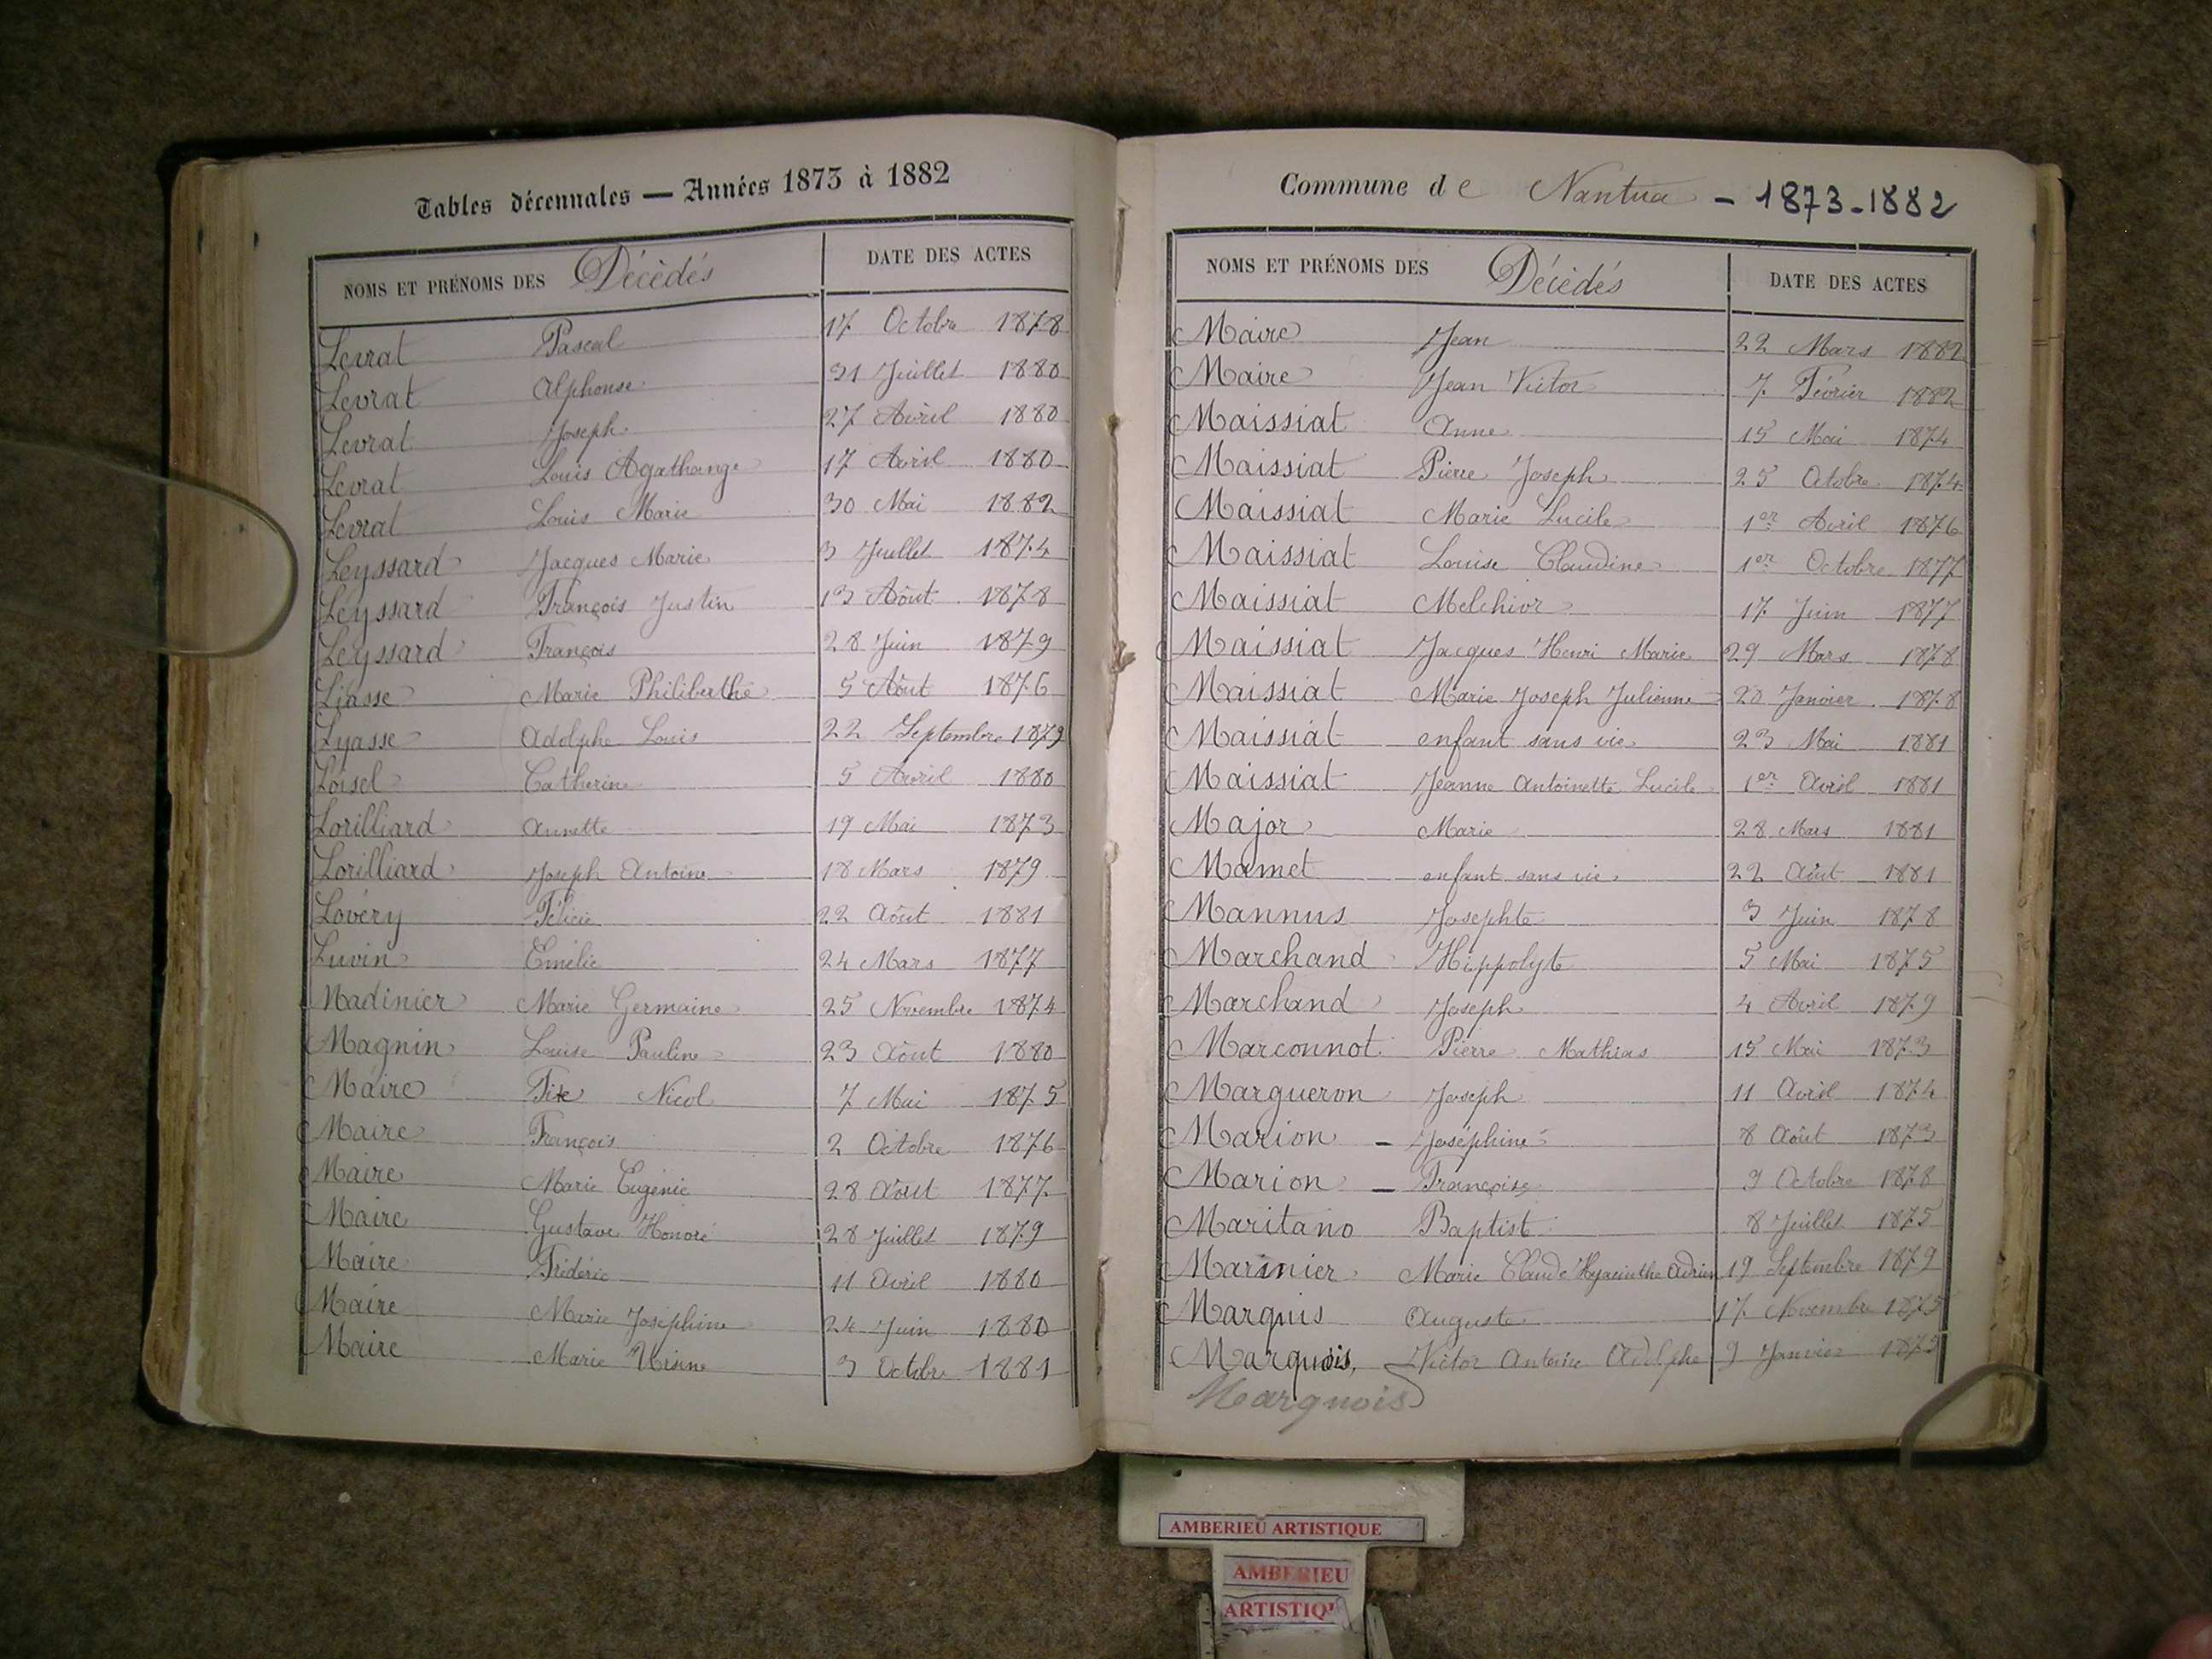 Tables décennales — Années 1873 à 1882
NOMS ET PRÉNOMS DES Décèdés DATE DES ACTES
Levrat Pascal 17 Octobre 1878
Levrat Alphonse 31 Juillet 1880
Levrat Joseph 27 Avril 1880
Levrat Louis Agathange 17 Avril 1880
Levrat Louis Marie 30 Mai 1882
Leyssard Jacques Marie 3 Juillet 1874
Leyssard François Justin 13 Août 1878
Leyssard François 28 Juin 1879
Liasse Marie Philiberthe 5 Août 1876
Lyasse Adolphe Louis 22 Septembre 1879
Loisel Catherine 5 Avril 1880
Lorilliard Annette 19 Mai 1873
Lorilliard Joseph Antoine 18 Mars 1879
Lovéry Félicie 22 Août 1881
Luvin Emélie 24 Mars 1877
Madinier Marie Germaine 25 Novembre 1874
Magnin Louise Pauline 23 Août 1880
Maire Nicol 7 Mai 1875
Maire François 2 Octobre 1876
Maire Marie Eugénie 28 Août 1877
Maire Gustave Honoré 28 Juillet 1879
Maire Fréderic 11 Avril 1880
Maire Marie Joséphine 24 Juin 1880
Maire Marie 3 Octobre 1881
Commune de Nantua - 1873-1882
NOMS ET PRÉNOMS DES Décèdés DATE DES ACTES
Maire Jean 22 Mars 1882
Maire Jean Victor 7 Février 1882
Maissiat Anne 15 Mai 1874
Maissiat Pierre Joseph 25 Octobre 1874
Maissiat Marie Lucile 1er Avril 1876
Maissiat Louise Claudine 1er Octobre 1877
Maissiat Melchior 17 Juin 1877
Maissiat Jacques Henri Marie 29 Mars 1878
Maissiat Marie Joseph Julienne 20 Janvier 1878
Maissiat enfant sans vie 23 Mai 1881
Maissiat Jeanne Antoinette Lucile 1er Avril 1881
Major Marie 28 Mars 1881
Mamet enfant sans vie 22 Août 1881
Mannus Josephte 3 Juin 1878
Marchand Hippolyte 5 Mai 1875
Marchand Joseph 4 Avril 1879
Marconnot Pierre Mathias 15 Mai 1873
Margueron Joseph 11 Avril 1874
Marion - Joséphine 8 Août 1873
Marion - Françoise 9 Octobre 1878
Maritano Baptist 8 Juillet 1875
Marinier Marie Claude Hyacinthe Adrien 19 Septembre 1879
Marquis Auguste 17 Novembre 1875
Marquois, Victor Antoine Adolphe 9 Janvier
Marquois
AMBERIEU ARTISTIQUE
AMBERIEU
ARTISTIQU